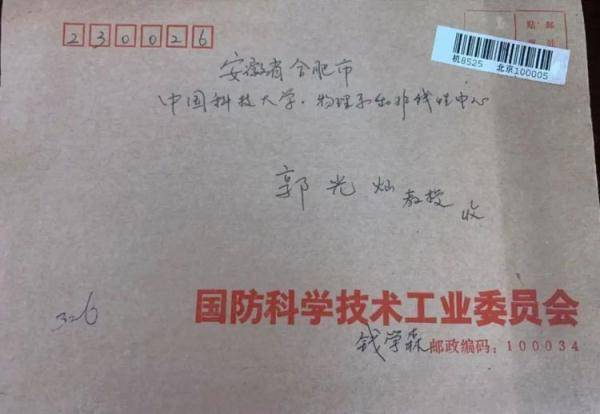 230026
贴 邮
机8525 北京100005
安徽省合肥市
中国科技大学·物理系非线性中心
郭光灿教授 收
326
国防科学技术工业委员会
钱学森 邮政编码:100034